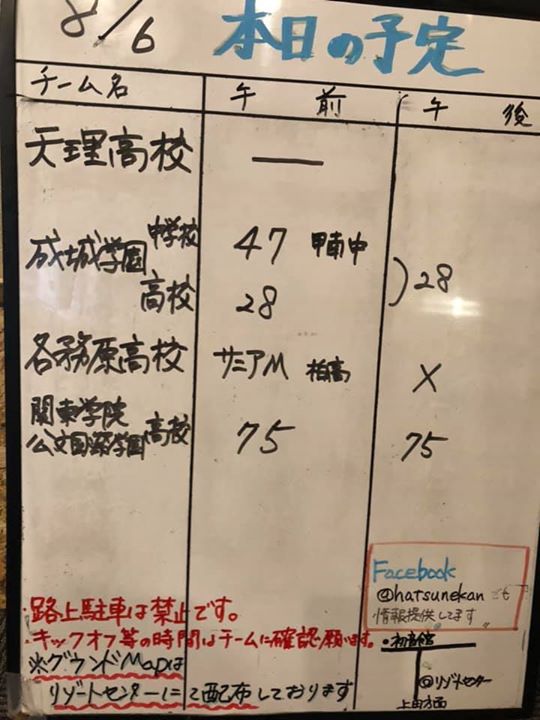 8/6 本日の予定
チーム名 午前 午後
天理高校 —
成城学園 中学校 47 甲南中
高校 28 )28
各務原高校 サニアM 柏高 ×
関東学院
公文国際学園 高校 75 75
Facebook
@hatsunekan でも
情報提供してます
・路上駐車は禁止です。
・キックオフ等の時間はチームに確認願います。
※グランドMapは
リゾートセンターにて配布しております
・初音館
◎リゾートセンター
上田方面